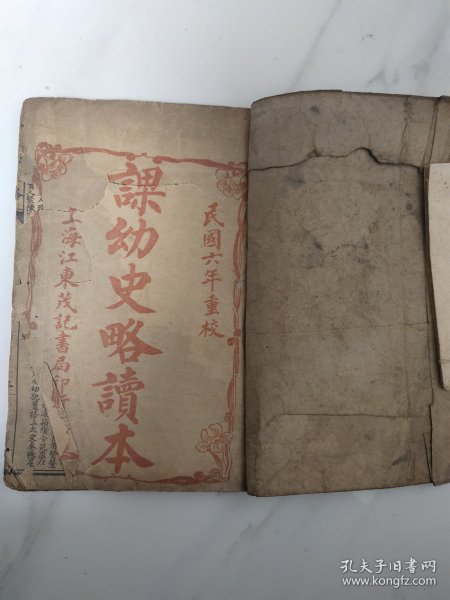 民國六年重校
課幼史略讀本
上海江東茂記書局印行
孔夫子旧书网
www.kongfz.com